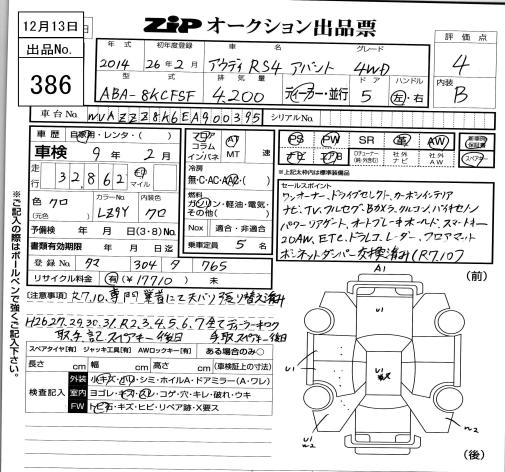 12月13日
ZIP オークション出品票
出品No.
386
年式 初年度登録 車名 グレード
2014 26年2月 アウディ RS4 アバント 4WD
評価点
4
型式 排気量 ドア ハンドル
ABA-8KCFSF 4.200 ディーラー・並行 5 左・右
内装
B
車台No. WUAZZZ8K6EA900395 シリアルNo.
車歴 自家用・レンタ・( )
車検 9年 2月
走行 32,862 km マイル
フロア コラム インパネ AT MT 速
冷房 無・C・AC・AAC・( )
ガソリン・軽油・電気・その他( )
色 クロ (元色) カラーNo. LZ9Y 内装色 クロ
予備検 年 月 日(3・8)No.
NOx 適合・非適合
書類有効期限 年 月 日迄
乗車定員 5 名
登録No. タマ 304 タ 765
リサイクル料金 有(¥17710 )無
PS PW SR 革 AW 新車時保証書
ナビ エアB 社外ナビ 社外AW スペアキー
※上記太枠内は標準装備品
セールスポイント
ワンオーナー、ドライブセレクト、カーボンインテリア
ナビ、TV、フルセグ、BOXラ、クルコン、バイキセノン
パワーリアゲート、オートブレーキホールド、スマートキー
20AW、ETC、ドラレコ、レーダー、フロアマット
ボンネットダンパー交換済み(R7.10)
[注意事項] R7.10、専門業者にて
H26.27.29.30.31.R2.3.4.5.6.7全てディーラーキロク
取・記・スペアキー後日
スペアタイヤ[有] ジャッキ工具[有] AWロックキー[有] ある場合のみ○
長さ cm 幅 cm 高さ cm (車検証上の寸法)
検査記入
外装 小キズ・小凹・シミ・ホイルA・ドアミラー(A・ワレ)
室内 ヨゴレ・キズ・スレ・コゲ・穴・キレ・破れ・ウキ
FW トビ石・キズ・ヒビ・リペア跡・X要ス
A1
(前)
U1
U1
U1
W2
W2
(後)
※ご記入の際はボールペンで強くご記入下さい。